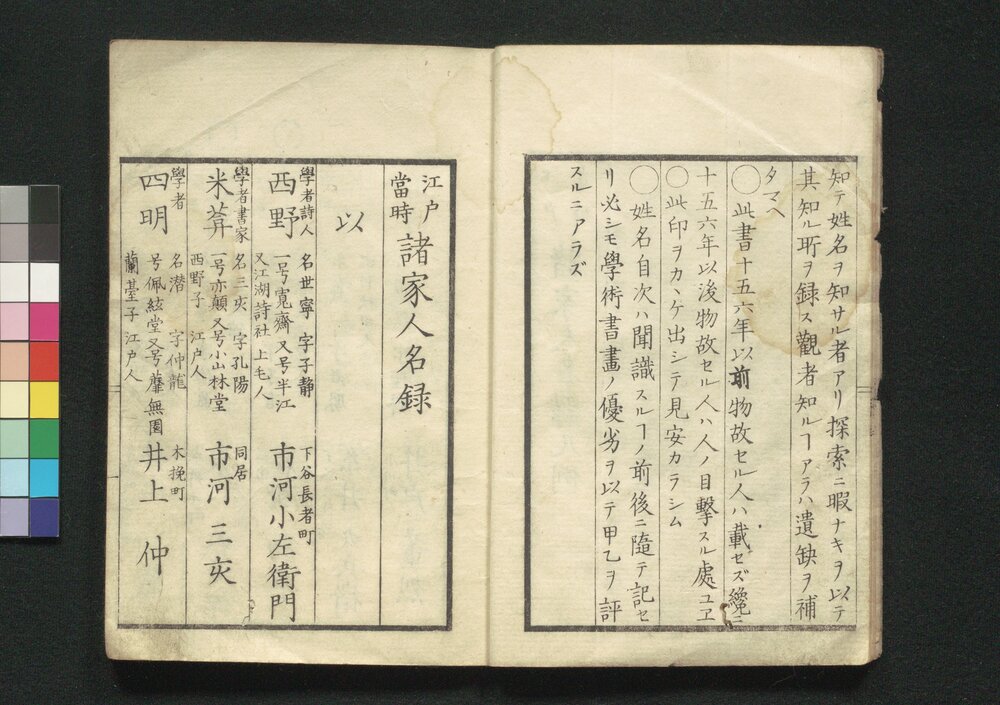 知テ姓名ヲ知サル者アリ探索ニ暇ナキヲ以テ
其知ル所ヲ録ス觀者知ルヿアラハ遺缺ヲ補
タマヘ
〇此書十五六年以前物故セル人ハ載セズ纔ニ
十五六年以後物故セル人ハ人ノ目擊スル處ユヱ
〇此印ヲカヽケ出シテ見安カラシム
〇姓名自次ハ聞識スルヿノ前後ニ隨テ記セ
リ必シモ學術書畫ノ優劣ヲ以テ甲乙ヲ評
スルニアラズ
江戸
當時
諸家人名録
以
學者詩人
西野
名世寧 字子静
一号寛齋 又号半江
又江湖詩社 上毛人
下谷長者町
市河小左衛門
學者書家
米葊
名三亥 字孔陽
一号亦顛又号小山林堂
西野子 江戸人
同居
市河三亥
學者
四明
名潜 字仲龍
号佩絃堂又号蘼無園
蘭臺子 江戸人
木挽町
井上仲